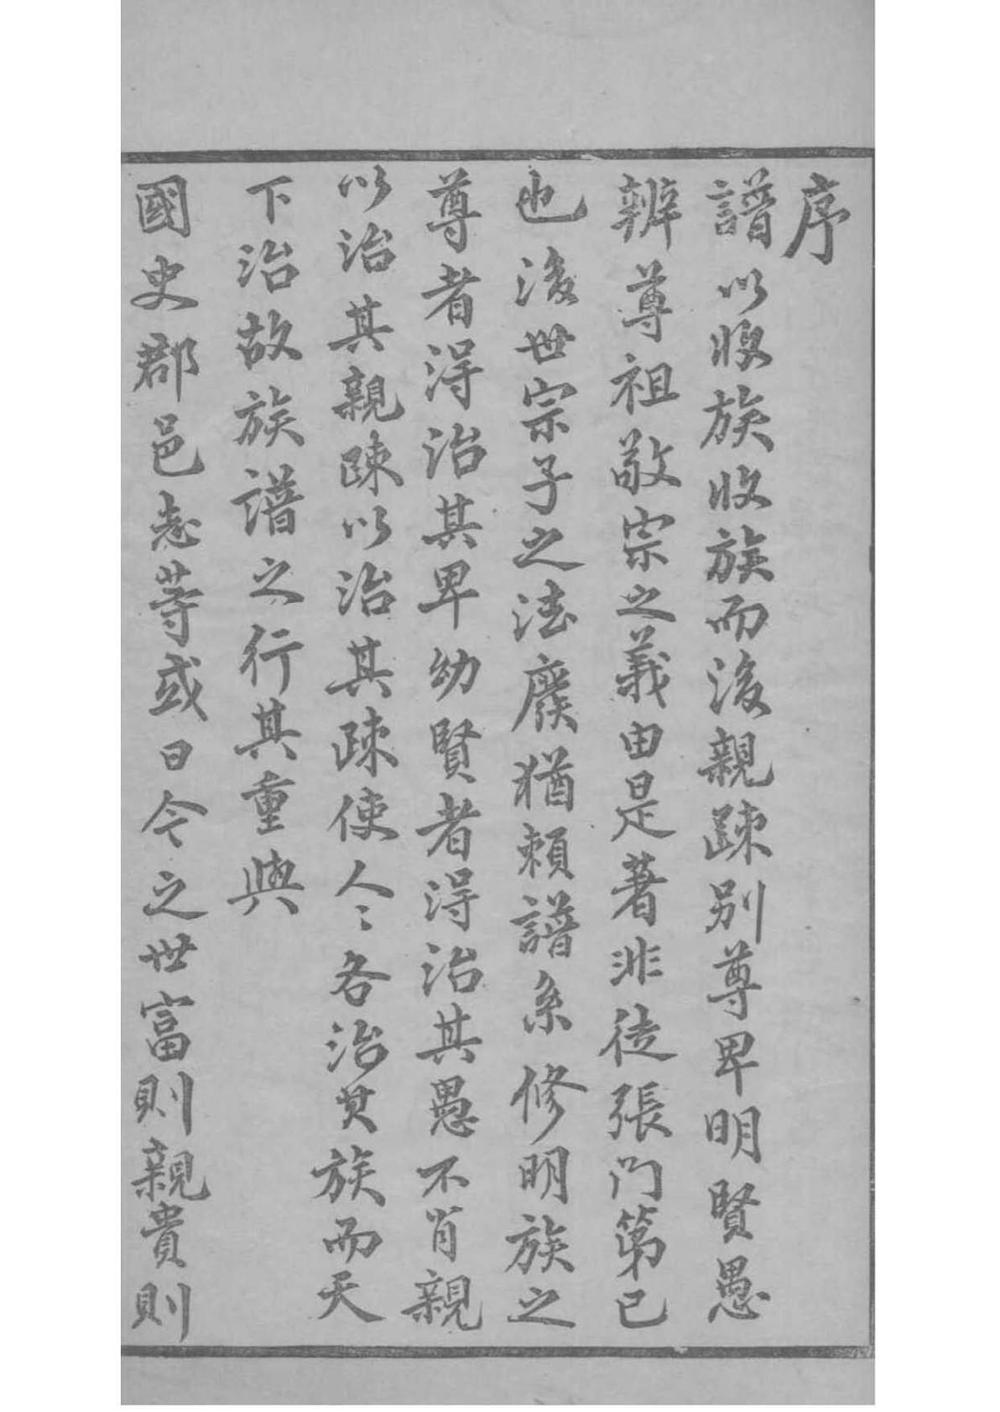 序
譜以收族收族而後親踈別尊卑明賢愚
辨尊祖敬宗之義由是著非徒張门第已
也後世宗子之法廢猶賴譜系修明族之
尊者得治其卑幼賢者得治其愚不肖親
以治其親踈以治其踈使人〻各治其族而天
下治故族譜之行其重與
國史郡邑志等或曰今之世富則親貴則